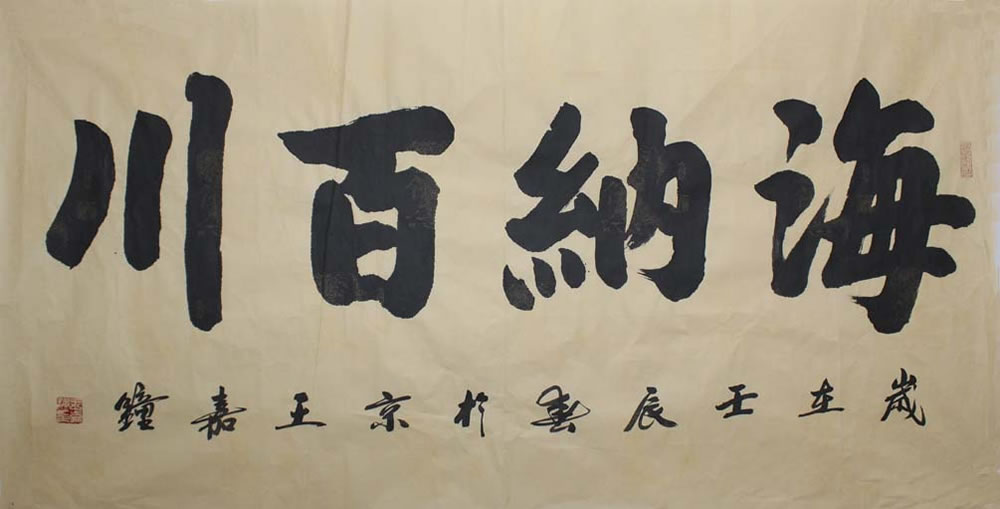 海納百川
歲在壬辰春於京王嘉鐘